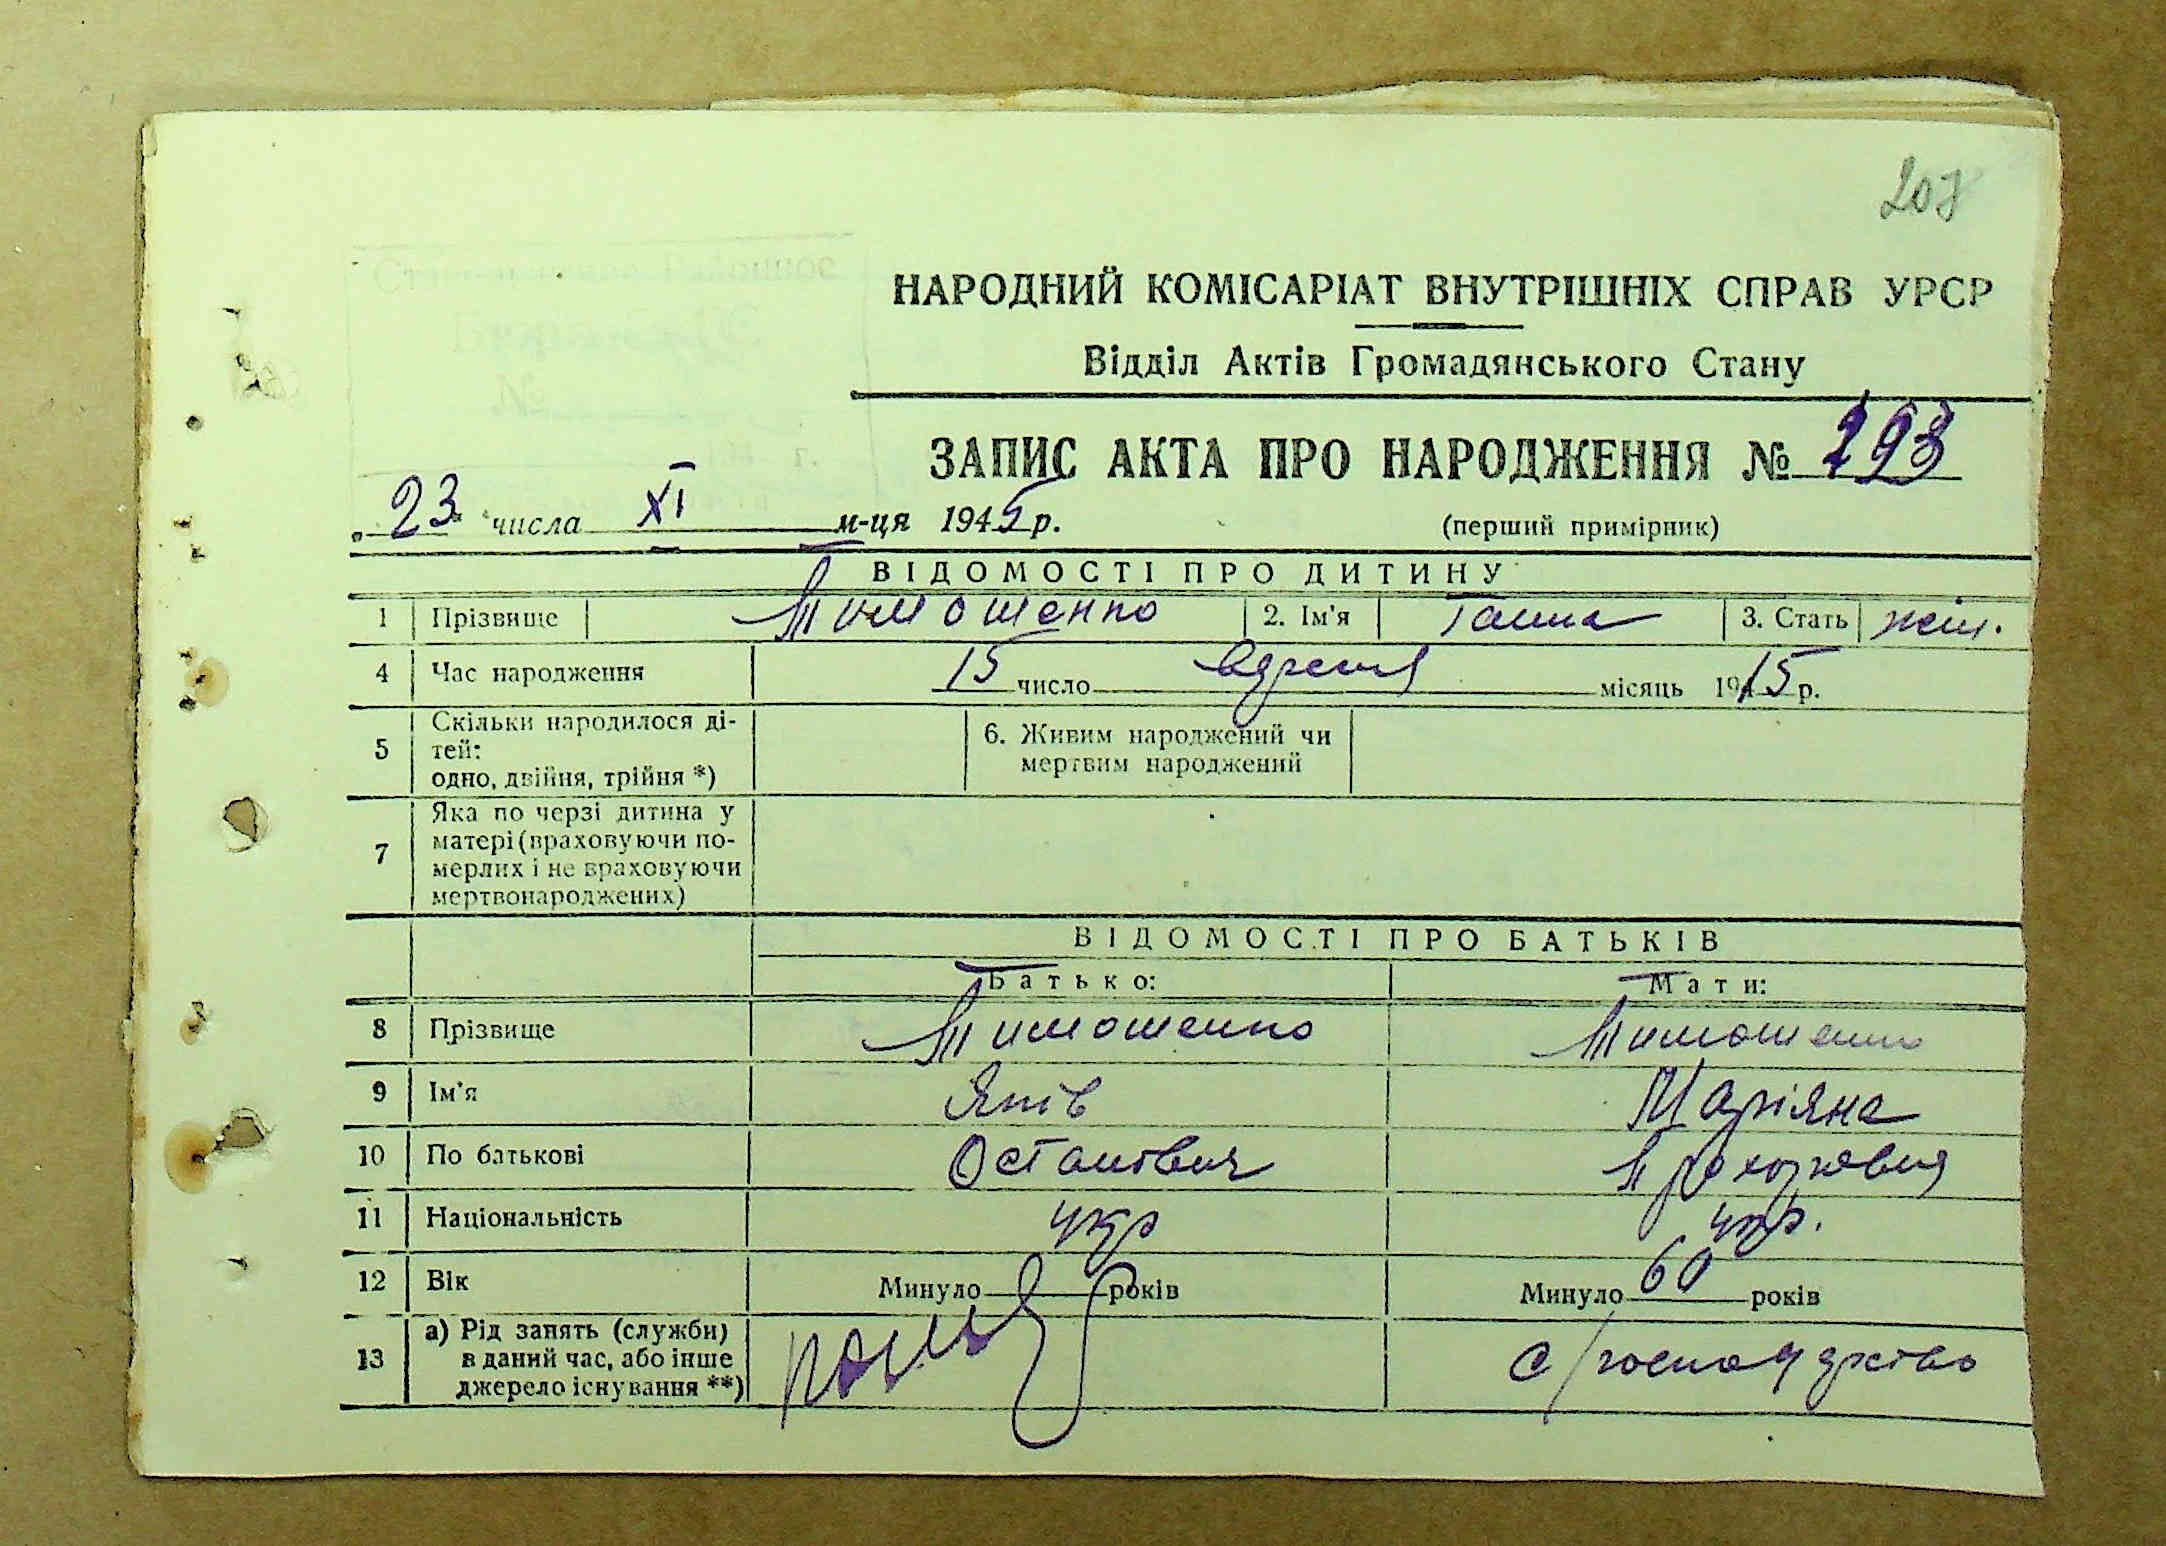 207
НАРОДНИЙ КОМІСАРІАТ ВНУТРІШНІХ СПРАВ УРСР
Відділ Актів Громадянського Стану
ЗАПИС АКТА ПРО НАРОДЖЕННЯ № 293
"23" числа XI м-ця 1945 р. (перший примірник)
ВІДОМОСТІ ПРО ДИТИНУ
1 Прізвище Тимошенко 2. Ім'я Ганна 3. Стать жін.
4 Час народження 15 число серпня місяць 1915 р.
5 Скільки народилося ді-
тей:
одно, двійня, трійня *)
6. Живим народжений чи
мертвим народжений
7 Яка по черзі дитина у
матері (враховуючи по-
мерлих і не враховуючи
мертвонароджених)
ВІДОМОСТІ ПРО БАТЬКІВ
Батько: Мати:
8 Прізвище Тимошенко Тимошенко
9 Ім'я Яків Маріяна
10 По батькові Остапович Прохоровна
11 Національність укр укр.
12 Вік Минуло років Минуло 60 років
13 а) Рід занять (служби)
в даний час, або інше
джерело існування **)
с/господарство